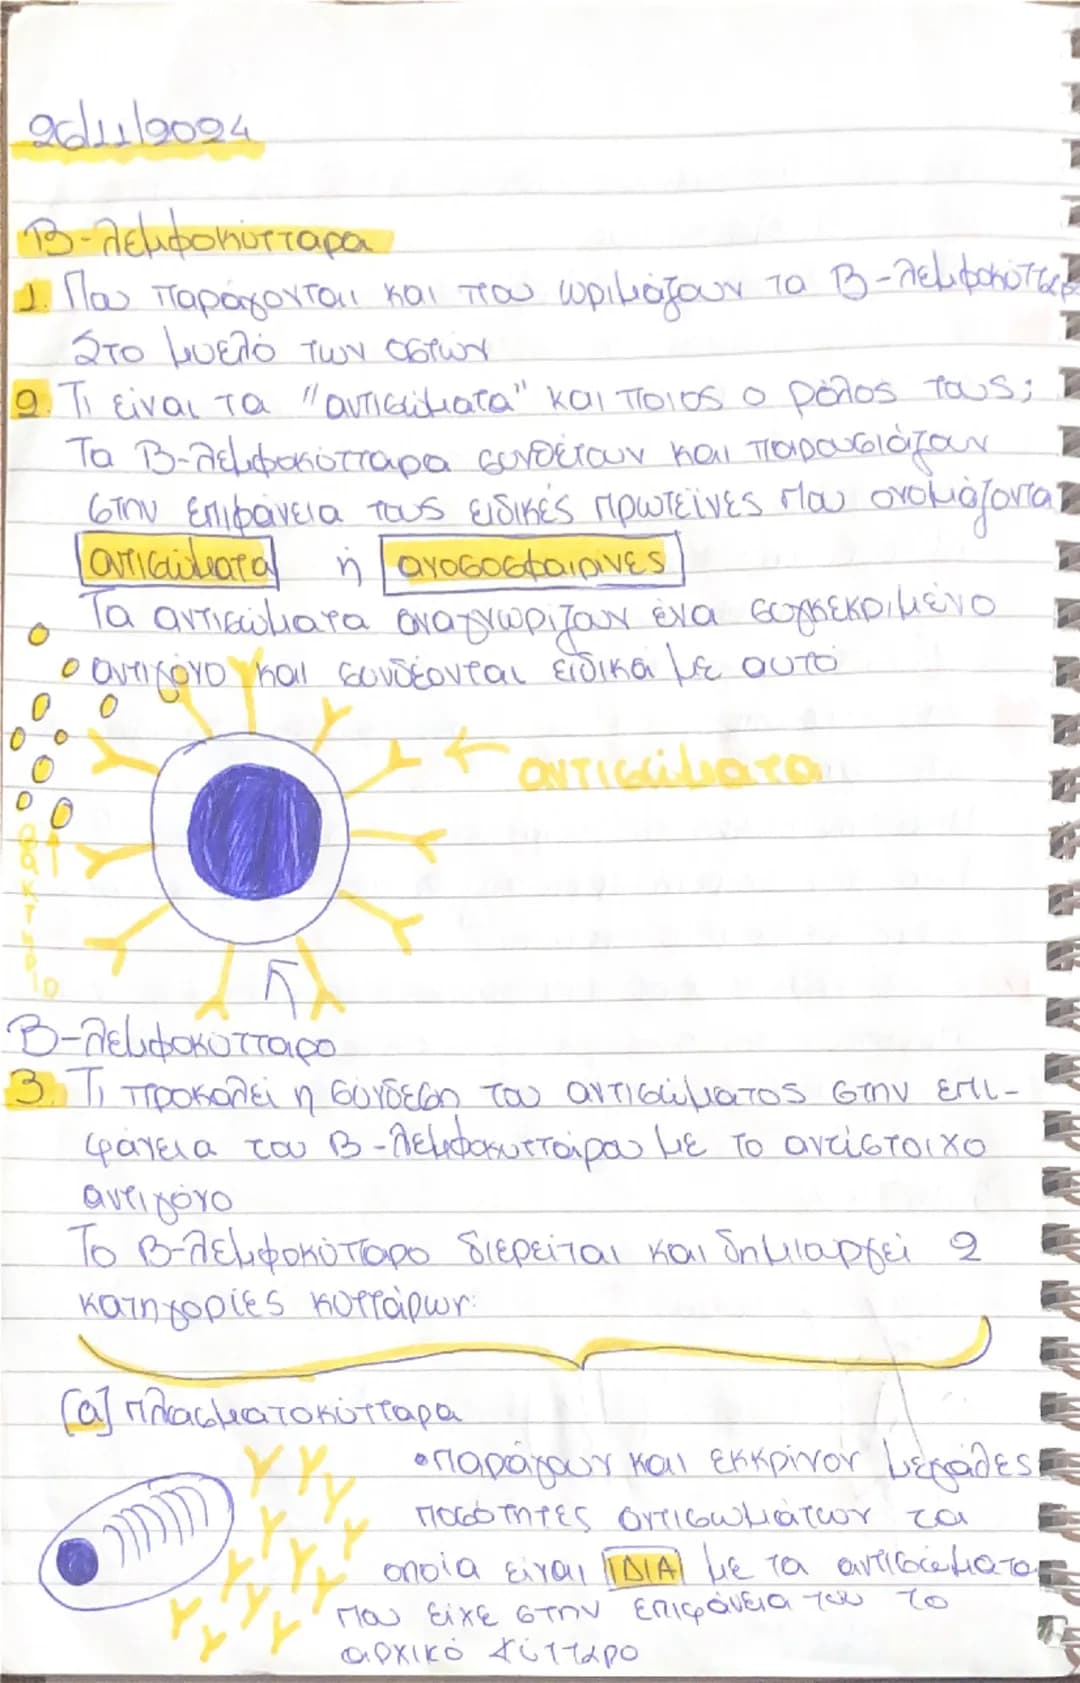 26/11/2024
Β-λεμφοκύτταρα
1. Που παράγονται και που ωριμάζουν τα Β-λεμφοκύτταρ
Στο μυελό των οστών
2. Τι είναι τα "αντισώματα" και ποιος ο ρόλος τους;
Τα Β-λεμφοκύτταρα συνθέτουν και παρουσιάζουν
στην επιφάνεια τους ειδικές πρωτεΐνες που ονομάζονται
αντισώματα ή ανοσοσφαιρίνες
Τα αντισώματα αναγνωρίζουν ένα συγκεκριμένο
αντιγόνο και συνδέονται ειδικά με αυτό
αντισώματα
βακτήριο
Β-λεμφοκύτταρο
3. Τι προκαλεί η σύνδεση του αντισώματος στην επι-
φάνεια του Β-λεμφοκυττάρου με το αντίστοιχο
αντιγόνο
Το Β-λεμφοκύτταρο διερείται και δημιουργεί 2
κατηγορίες κυττάρων:
[α] Πλασματοκύτταρα
•παράγουν και εκκρίνον μεγάλες
ποσότητες αντισωμάτων τα
οποία είναι ΙΔΙΑ με τα αντισώματα
που είχε στην επιφάνεια του το
αρχικό κύτταρο